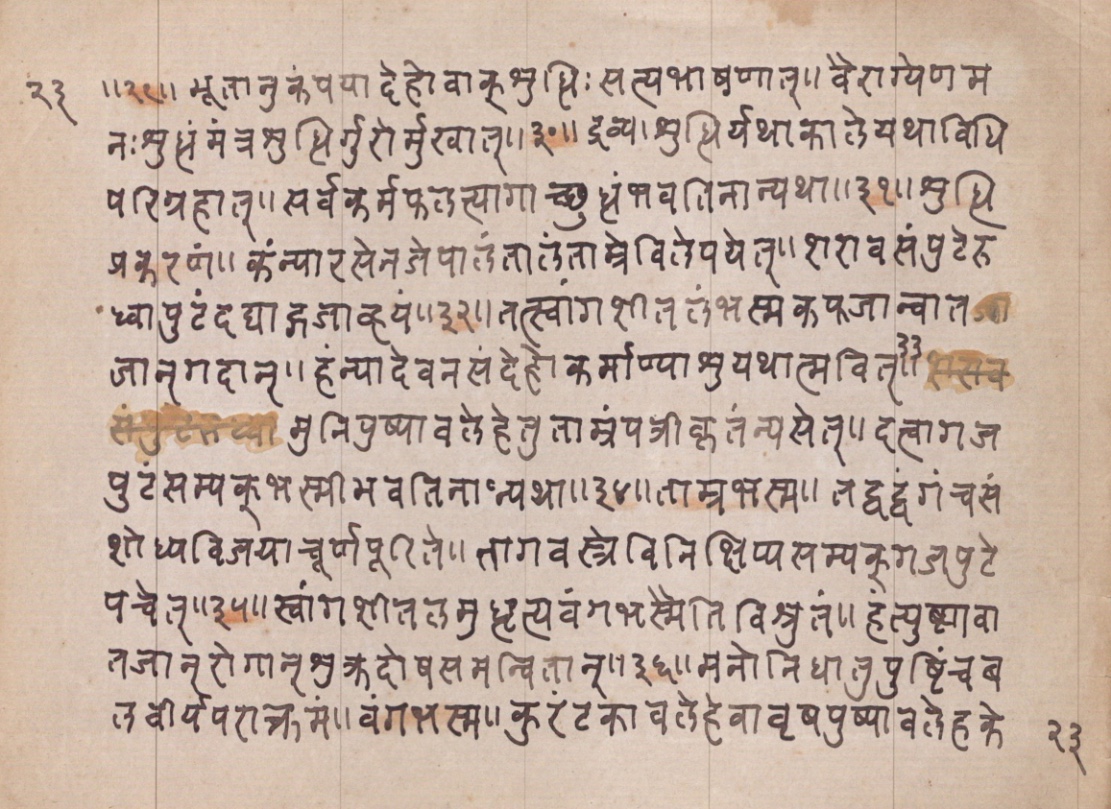 २३ ॥२९॥ भूतानुकंपया देहो वाक्शुद्धिः सत्यभाषणात्॥ वैराग्येण म
नःशुद्धं मंत्रशुद्धिर्गुरोर्मुखात्॥३०॥ द्रव्यशुद्धिर्यथाकाले यथाविधि
परिग्रहात्॥ सर्वकर्मफलत्यागाच्छुद्धं भवति नान्यथा॥३१॥ शुद्धि
प्रकरणं॥ कंन्यारसेन जेपालं तालं ताम्रे विलेपयेत्॥ शरावसंपुटे रु
ध्वा पुटं दद्याद्गजाव्हयं॥३२॥ तत्स्वांगशीतलं भस्म कफजान्वात
जान् गदान्॥ हंन्यादेव न संदेहो कर्माण्याशु यथात्मवित्॥३३
मुनिपुष्पावलेहे तु ताम्रं पत्रीकृतं न्यसेत्॥ दत्वा गज
पुटं सम्यक् भस्मीभवति नान्यथा॥३४॥ ताम्रभस्म॥ तद्वद्वंगं च सं
शोध्य विजयाचूर्णपूरिते॥ तागवस्त्रे विनिक्षिप्य सम्यक् गजपुटे
पचेत्॥३५॥ स्वांगशीतलमुधृत्य वंगभस्मैति विश्रुतं॥ हंत्युष्णवा
तजान् रोगान् शुक्रदोषसमन्वितान्॥३६॥ मनोतिधातुपुष्टिं च ब
लवीर्यपराक्रमं॥ वंगभस्म॥ कुरंटकावलेहे वा वृषपुष्पावलेहके
२३